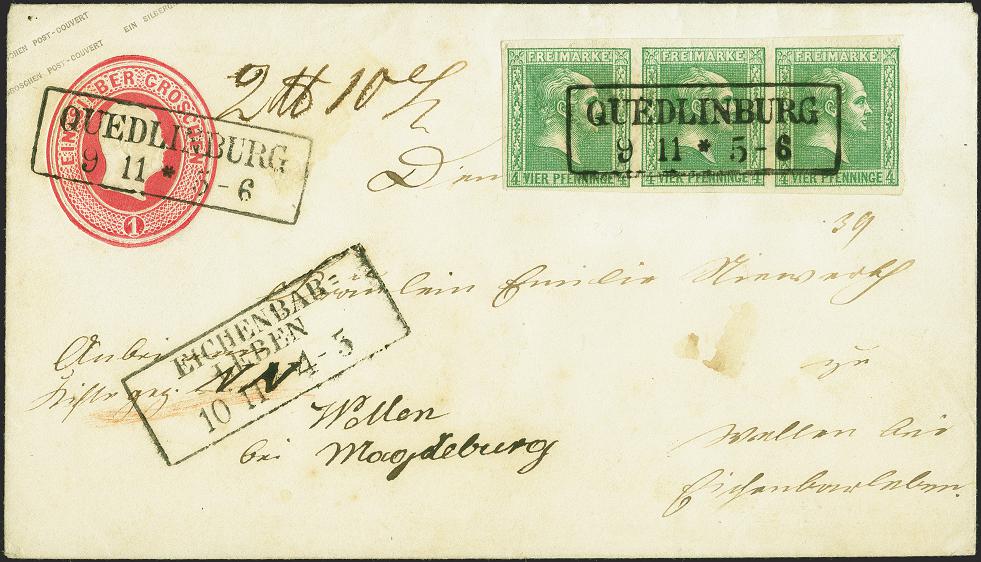 SCHEN POST-COUVERT EIN SILBERG
GROSCHEN POST-COUVERT
EIN SILBER GROSCHEN
1
QUEDLINBURG
9 11 * 5-6
10
FREIMARKE
4 VIER PFENNINGE 4
FREIMARKE
4 VIER PFENNINGE 4
FREIMARKE
4 VIER PFENNINGE 4
QUEDLINBURG
9 11 * 5-6
39
Fräulein Emilie Niewerth
EICHENBAR=
LEBEN
10 11 4-5
Anbei
Kiste gez.
zu
Wellen
bei Magdeburg
Wellen bei
Eichenbarleben.